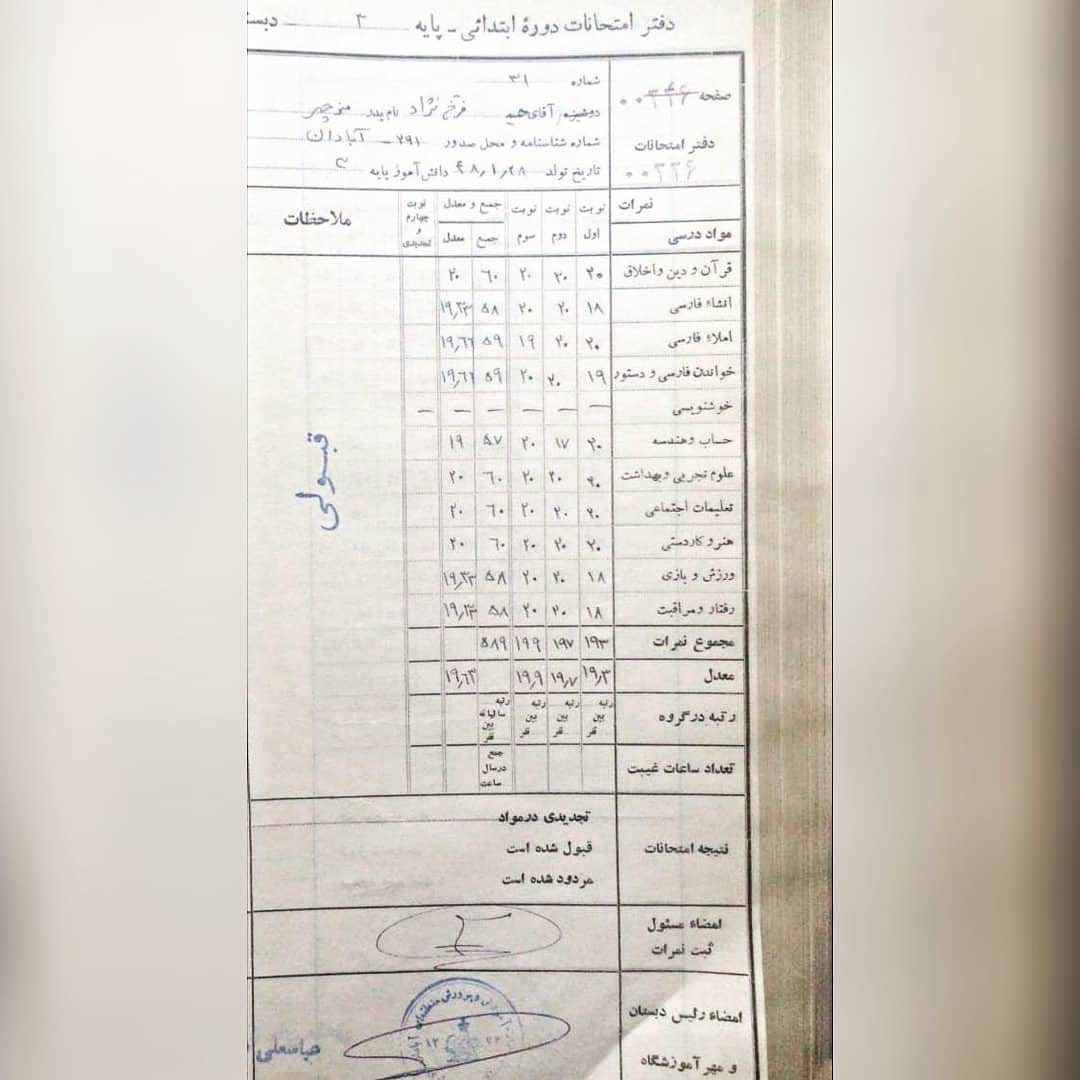 دفتر امتحانات دورهٔ ابتدائی - پایه ۳ دبستا
صفحه ۰۰۳۴۶
دفتر امتحانات
۰۰۳۳۶
شماره ۳۱
دوشیزه/آقای حمید فرخ نژاد نام پدر منوچهر
شماره شناسنامه و محل صدور ۲۹۱ - آبادان
تاریخ تولد ۴۸/۱/۲۸ دانش آموز پایه ۳
نمرات نوبت نوبت نوبت جمع و معدل نوبت چهارم و تجدیدی ملاحظات
مواد درسی اول دوم سوم جمع معدل
قرآن و دین و اخلاق ۲۰ ۲۰ ۲۰ ۶۰ ۲۰
انشاء فارسی ۱۸ ۲۰ ۲۰ ۵۸ ۱۹٫۳۳
املاء فارسی ۲۰ ۲۰ ۱۹ ۵۹ ۱۹٫۶۶
خواندن فارسی و دستور ۱۹ ۲۰ ۲۰ ۵۹ ۱۹٫۶۶
خوشنویسی — — — — — —
حساب و هندسه ۲۰ ۱۷ ۲۰ ۵۷ ۱۹
علوم تجربی و بهداشت ۲۰ ۲۰ ۲۰ ۶۰ ۲۰
تعلیمات اجتماعی ۲۰ ۲۰ ۲۰ ۶۰ ۲۰
هنر و کاردستی ۲۰ ۲۰ ۲۰ ۶۰ ۲۰
ورزش و بازی ۱۸ ۲۰ ۲۰ ۵۸ ۱۹٫۳۳
رفتار و مراقبت ۱۸ ۲۰ ۲۰ ۵۸ ۱۹٫۳۳
مجموع نمرات ۱۹۳ ۱۹۷ ۱۹۹ ۵۸۹
معدل ۱۹٫۳ ۱۹٫۷ ۱۹٫۹ ۱۹٫۶۳
قبولی
رتبه در گروه رتبه بین نفر رتبه بین نفر رتبه بین نفر رتبه سالیانه بین نفر
تعداد ساعات غیبت جمع در سال ساعت
نتیجه امتحانات
تجدیدی در مواد
قبول شده است
مردود شده است
امضاء مسئول
ثبت نمرات
امضاء رئیس دبستان
و مهر آموزشگاه
عباسعلی